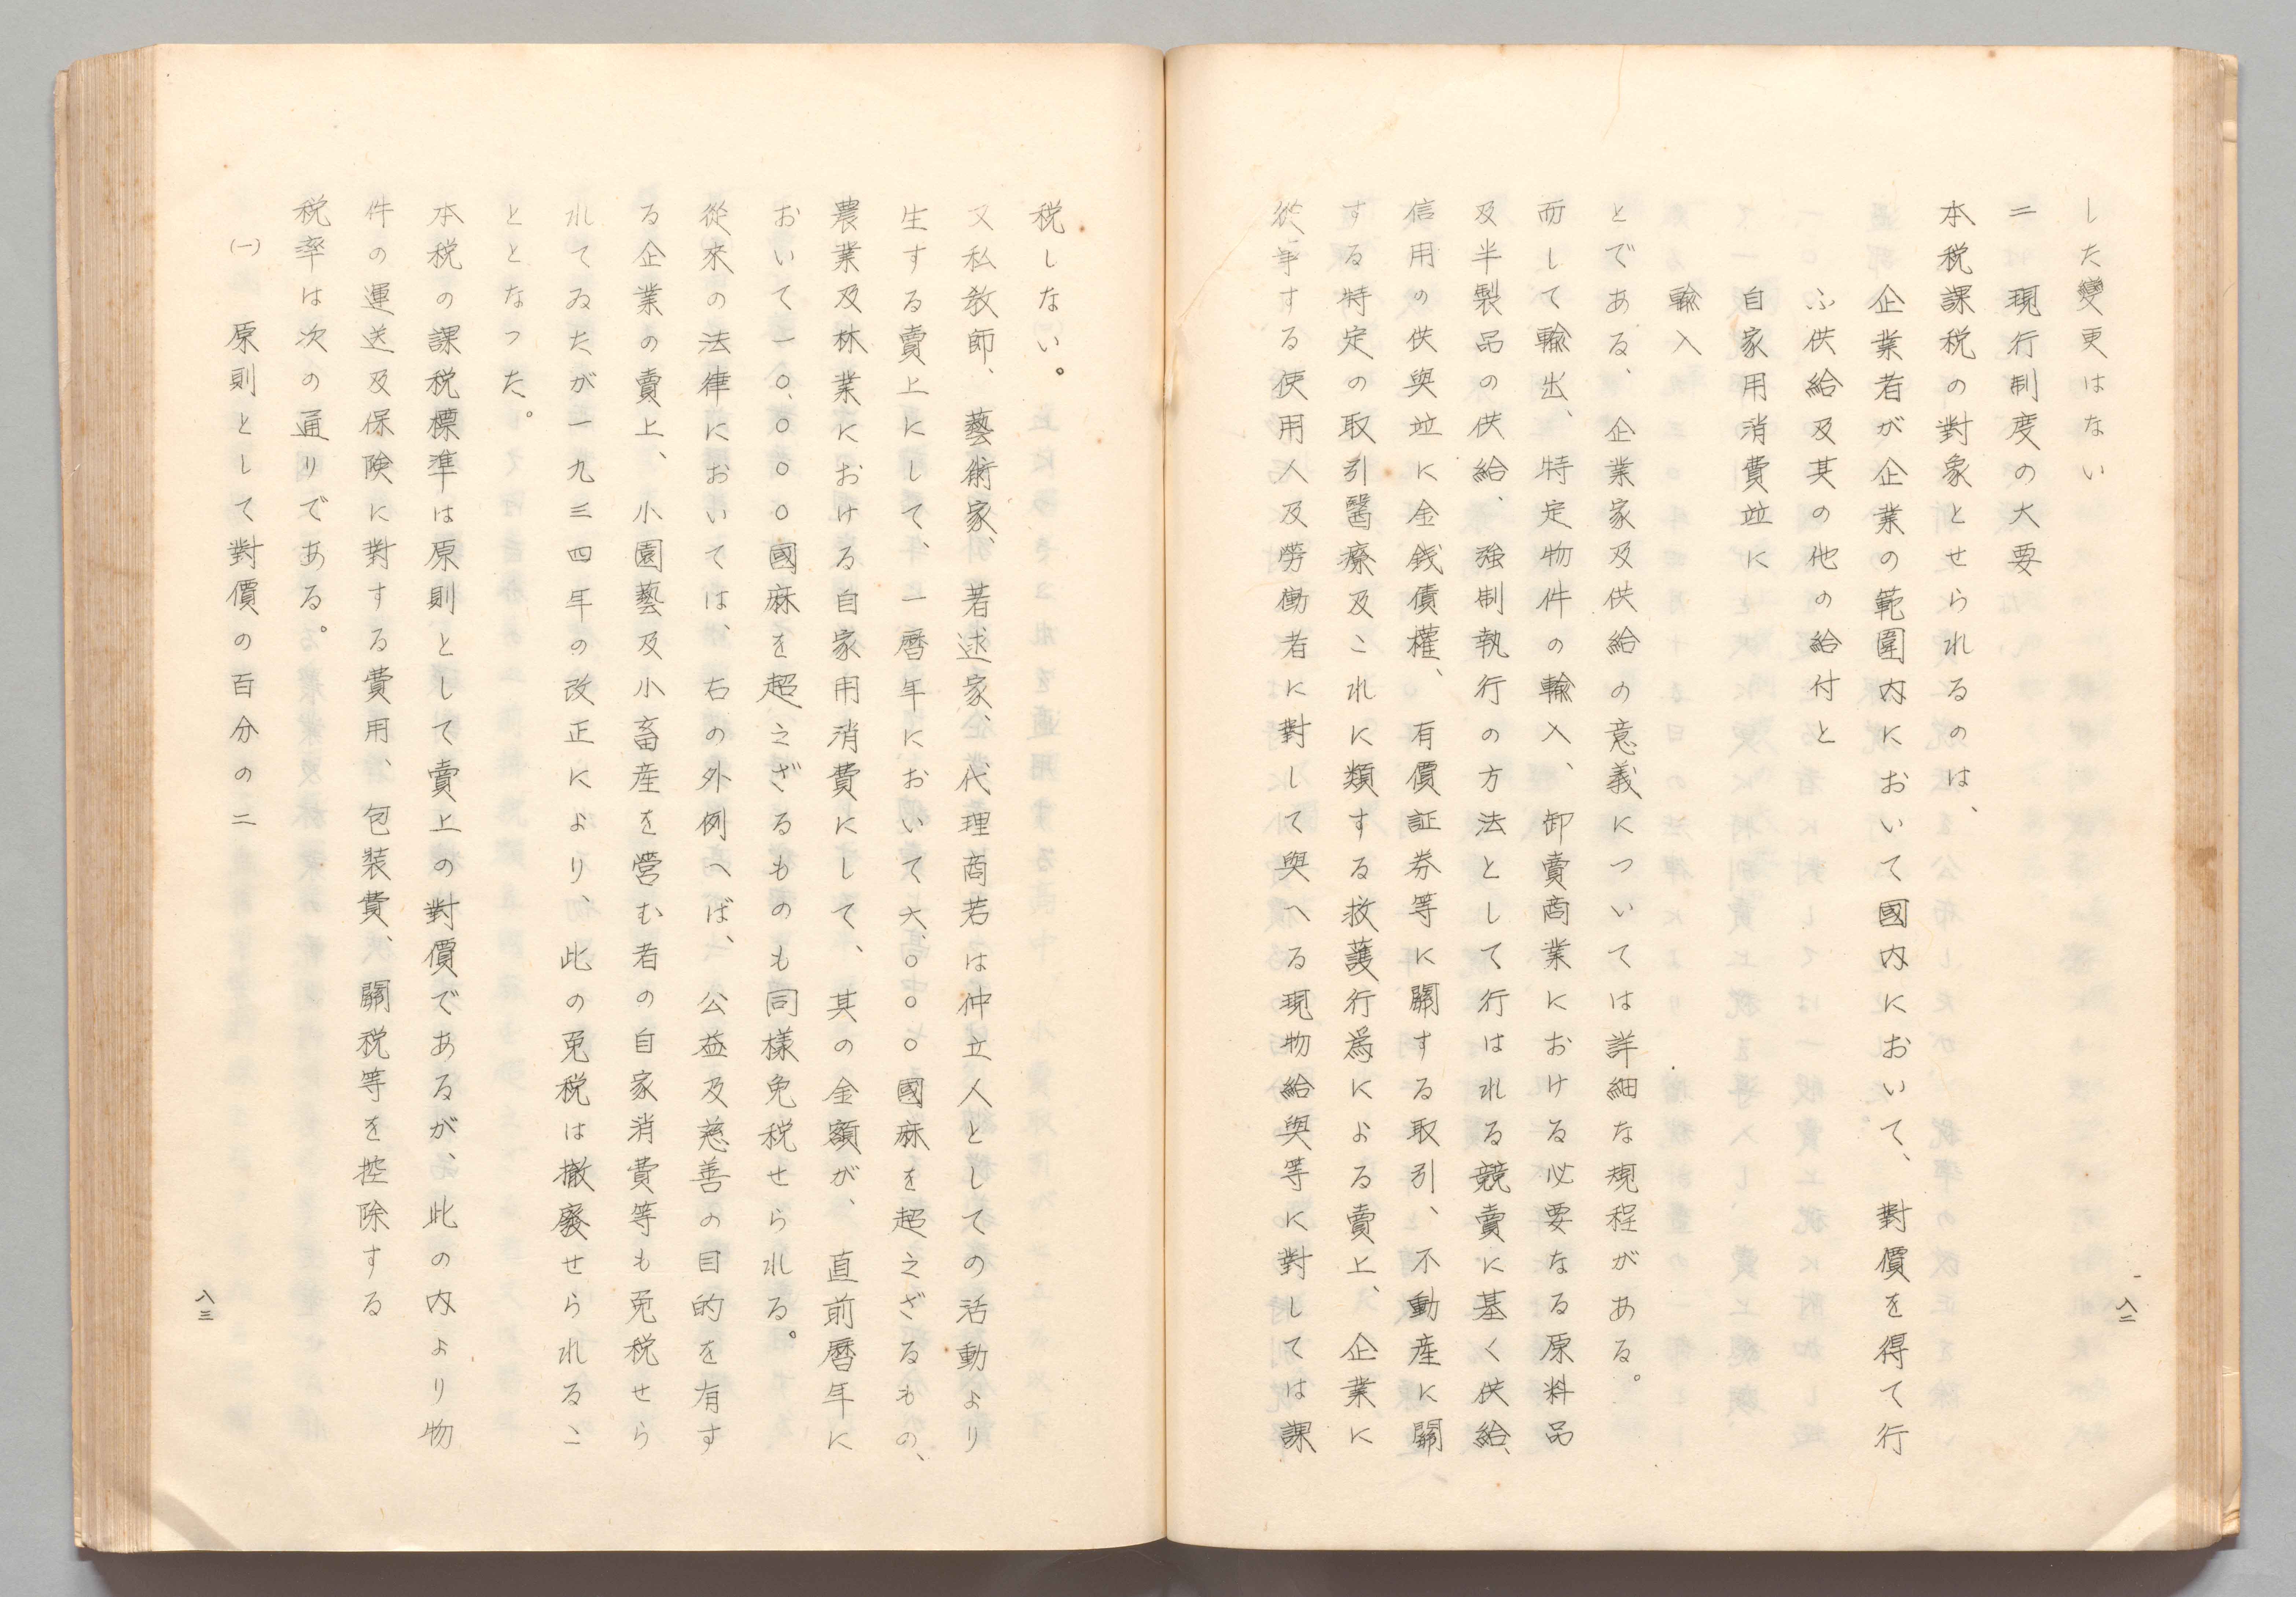 した變更はない
二　現行制度の大要
本税課税の對象とせられるのは、
企業者が企業の範圍内において國内において、對價を得て行
ふ供給及其の他の給付と
自家用消費竝に
輸入
とである、企業家及供給の意義については詳細な規程がある。
而して輸出、特定物件の輸入、卸賣商業における必要なる原料品
及半製品の供給、強制執行の方法として行はれる競賣に基く供給、
信用の供與竝に金錢債權、有價証券等に關する取引、不動産に關
する特定の取引醫療及これに類する救護行爲による賣上、企業に
從事する使用人及勞働者に對して與へる現物給與等に對しては課
八二
税しない。
又私教師、藝術家、著述家、代理商若は仲立人としての活動より
生する賣上にして、一暦年において六、〇〇〇國麻を超之ざるもの、
農業及林業における自家用消費にして、其の金額が、直前暦年に
おいて一〇、〇〇〇國麻を超之ざるものも同樣免税せられる。
從來の法律においては、右の外例へば、公益及慈善の目的を有す
る企業の賣上、小園藝及小畜産を營む者の自家消費等も免税せら
れてゐたが一九三四年の改正により、此の免税は撤廢せられるこ
ととなつた。
本税の課税標準は原則として賣上の對價であるが、此の内より物
件の運送及保険に對する費用、包裝費、關税等を控除する
税率は次の通りである。
㈠　原則として對價の百分の二
八三